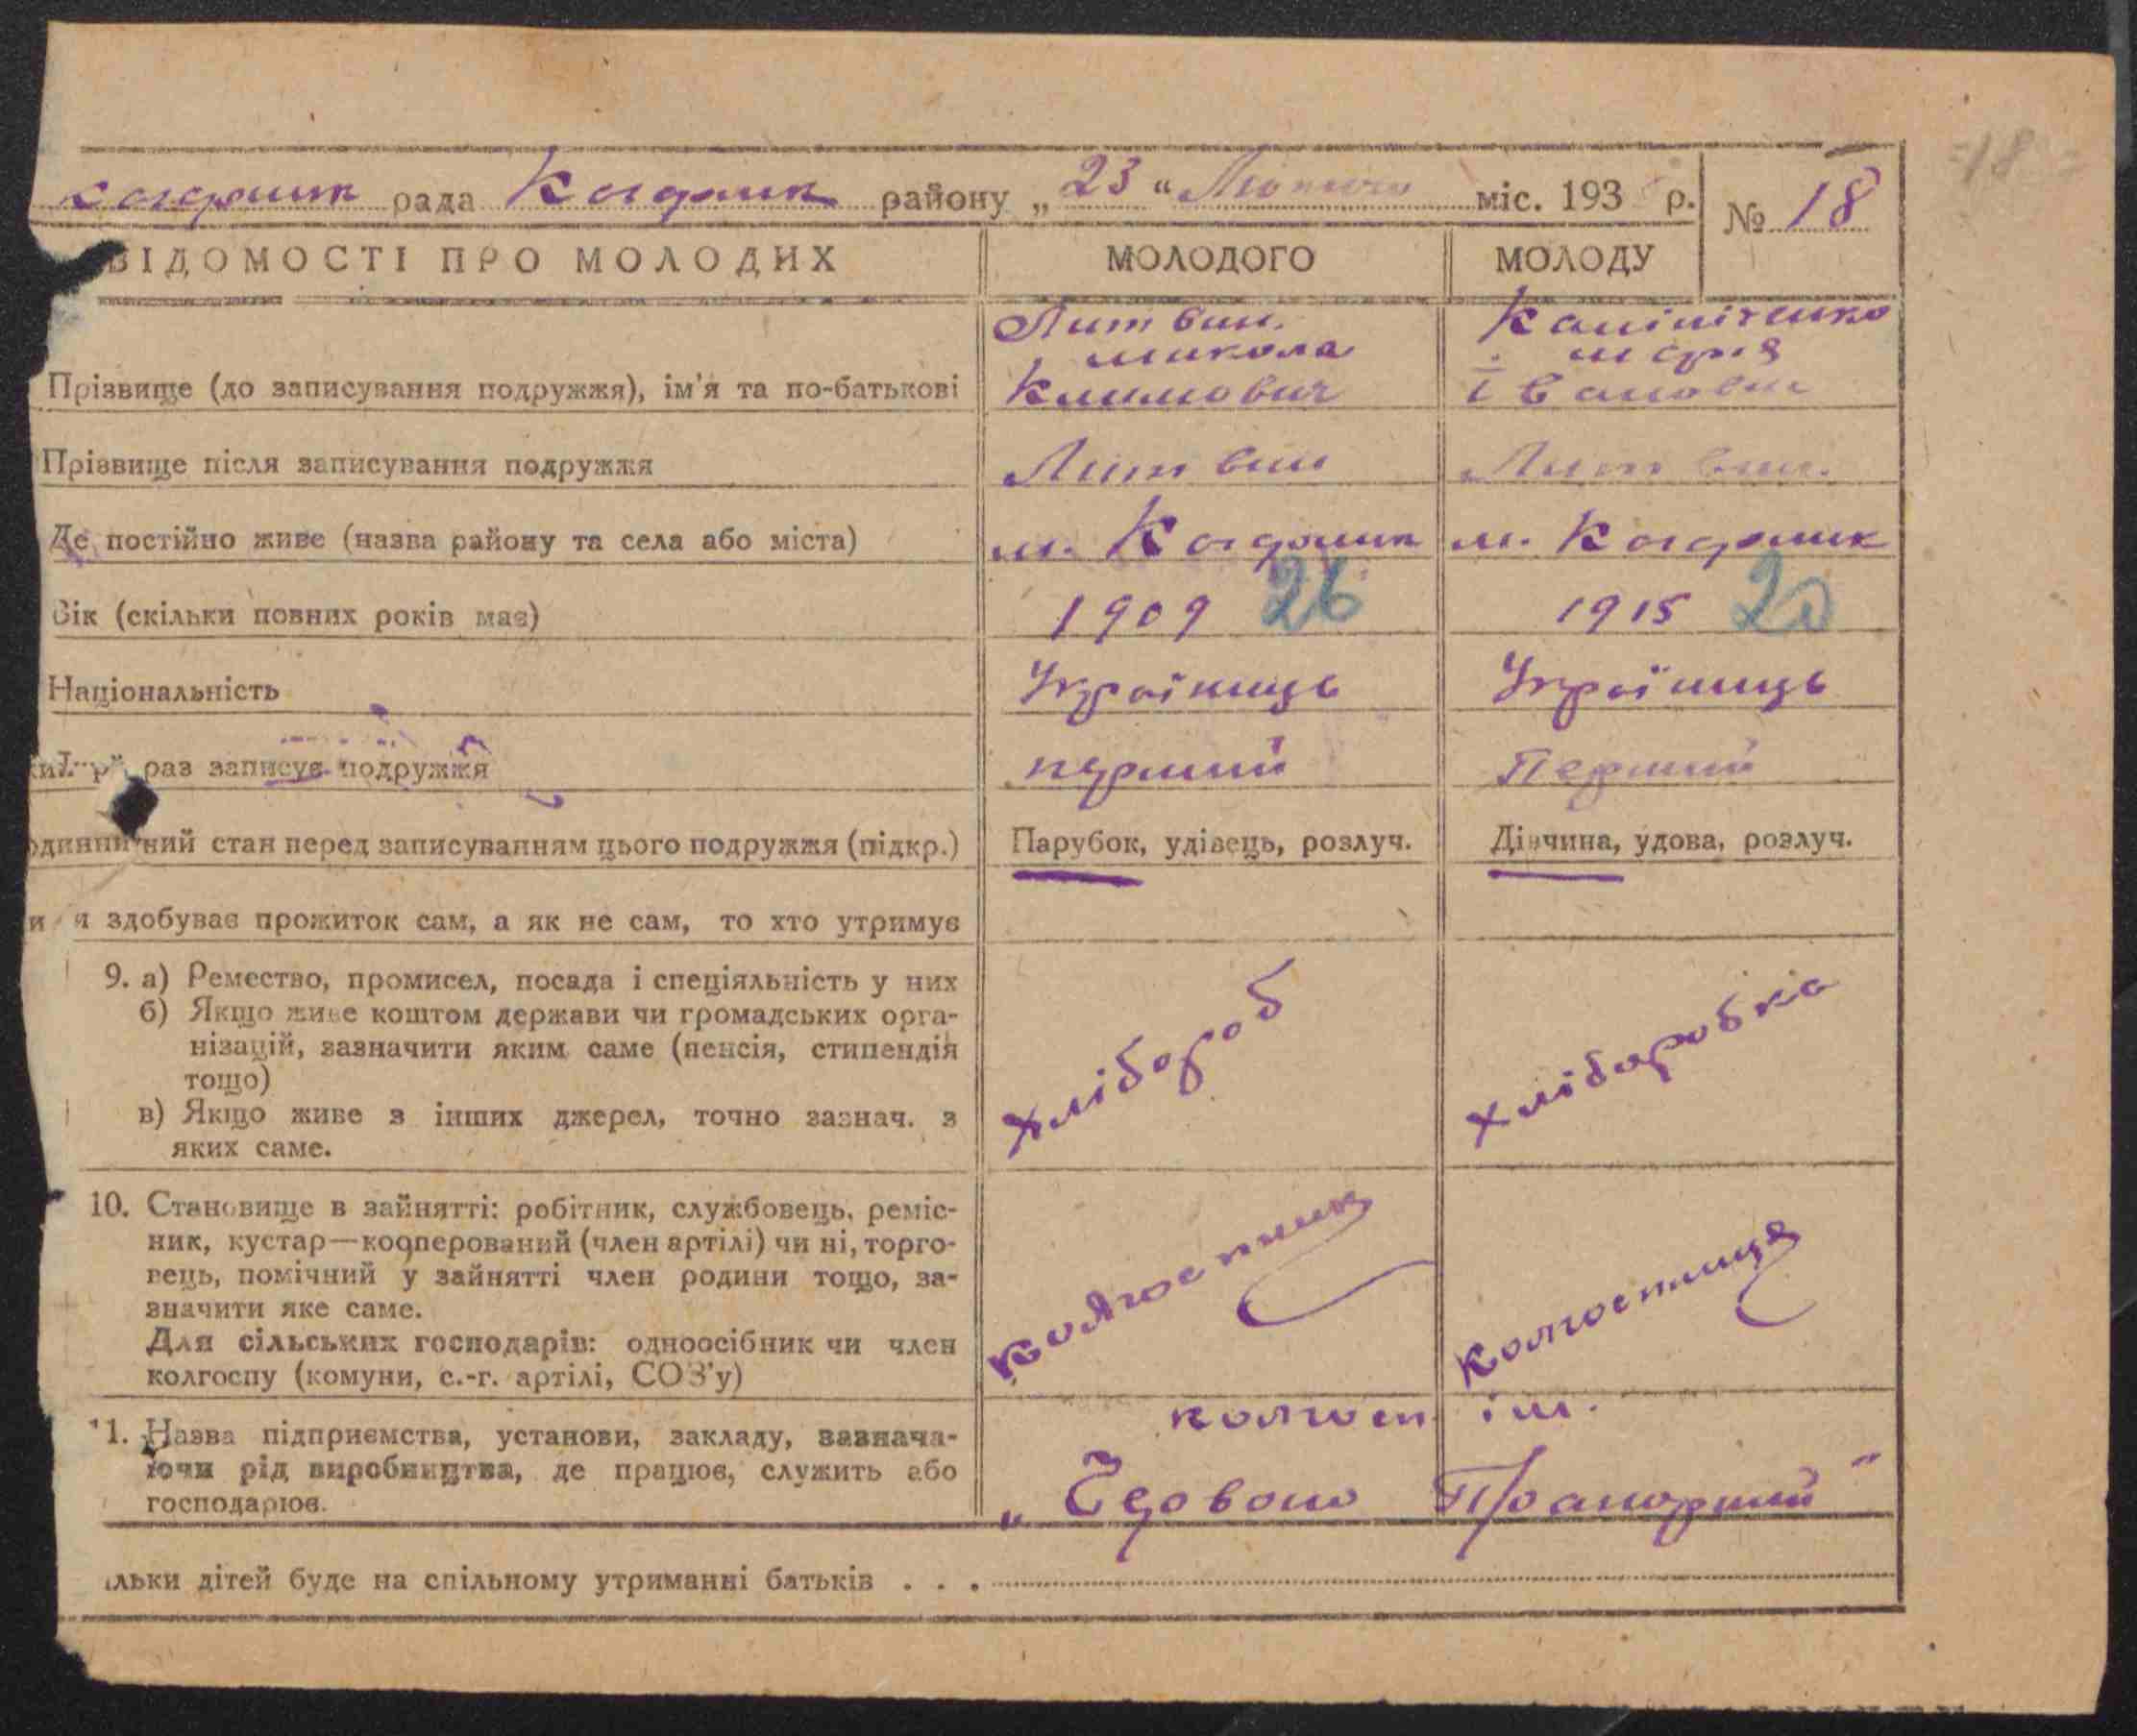 Кагарлик рада Кагарлик району „23“ Лютого міс. 193 р. № 18
=18=
ВІДОМОСТІ ПРО МОЛОДИХ МОЛОДОГО МОЛОДУ
Литвин
микола
Прізвище (до записування подружжя), ім'я та по-батькові Климович Івановн
Прізвище після записування подружжя Литвин Литвин.
Де постійно живе (назва району та села або міста) м. Кагарлик м. Кагарлик
Вік (скільки повних років має) 1909 26 1915 20
Національність Україниць Україниць
раз записує подружжя перший Перший
одинничний стан перед записуванням цього подружжя (підкр.) Парубок, удівець, розлуч. Дівчина, удова, розлуч.
и я здобуває прожиток сам, а як не сам, то хто утримує
9. а) Ремество, промисел, посада і спеціяльність у них
б) Якщо живе коштом держави чи громадських орга-
нізацій, зазначити яким саме (пенсія, стипендія
тощо)
в) Якщо живе з інших джерел, точно зазнач. з
яких саме.
хлібороб хліборобка
10. Становище в зайнятті: робітник, службовець, реміс-
ник, кустар—кооперований (член артілі) чи ні, торго-
вець, помічний у зайнятті член родини тощо, за-
значити яке саме.
Для сільських господарів: одноосібник чи член
колгоспу (комуни, с.-г. артілі, СОЗ'у)
колгоспник колгоспниця
11. Назва підприємства, установи, закладу, зазнача-
ючи рід виробництва, де працює, служить або
господарює.
колгосп ім.
„Червоно Прапорний"
ільки дітей буде на спільному утриманні батьків . . .